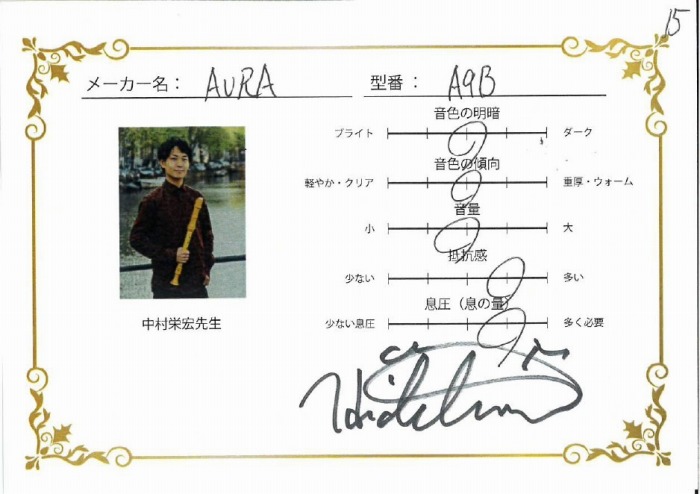 15
メーカー名： AURA 型番： A9B
音色の明暗
ブライト ダーク
音色の傾向
軽やか・クリア 重厚・ウォーム
音量
小 大
抵抗感
少ない 多い
息圧（息の量）
少ない息圧 多く必要
中村栄宏先生